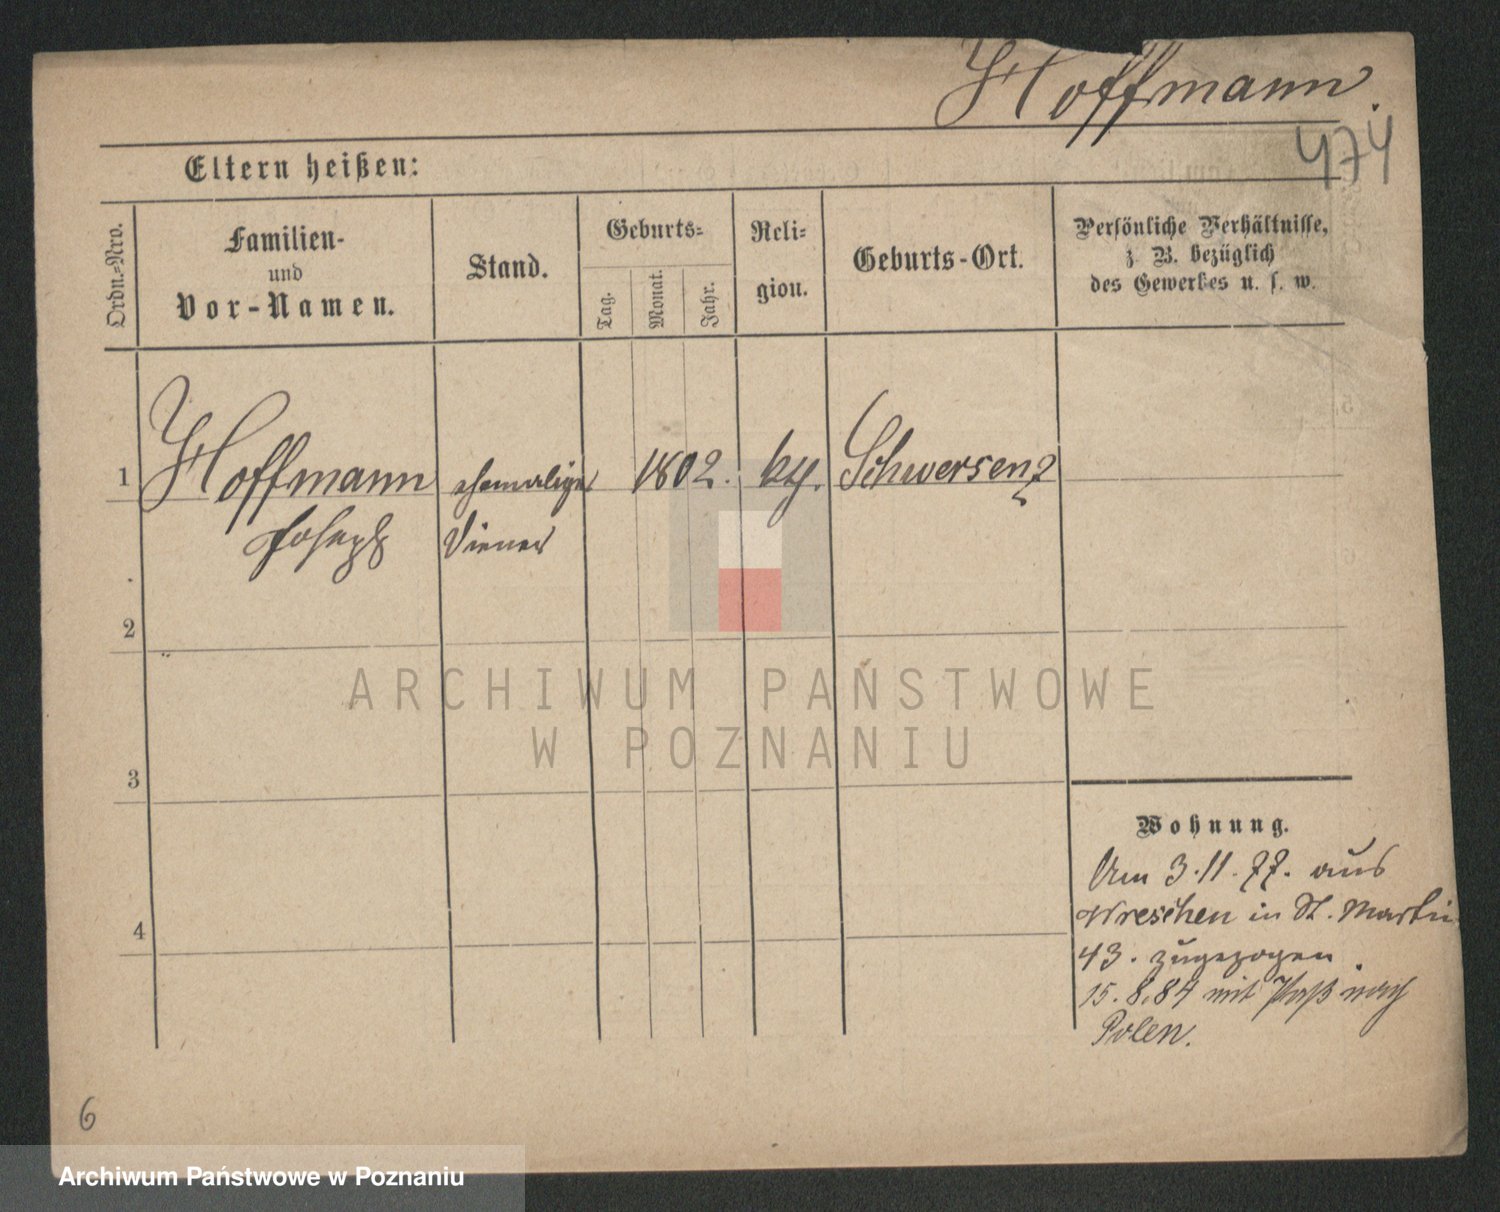 Hoffmann.
474
Eltern heißen:
Ordn.-Nro.
Familien-
und
Vor-Namen.
Stand.
Geburts-
Tag.
Monat.
Jahr.
Reli-
gion.
Geburts-Ort.
Persönliche Verhältnisse,
z. B. bezüglich
des Gewerbes u. s. w.
1
Hoffmann
ehemaliger
1802.
Schwersenz
Joseph
Diener
2
3
4
Wohnung.
Am 3.11.77. aus
Wreschen in St. Martin
43. zugezogen.
15.8.84 mit Paß nach
Polen.
6
ARCHIWUM PAŃSTWOWE
W POZNANIU
Archiwum Państwowe w Poznaniu